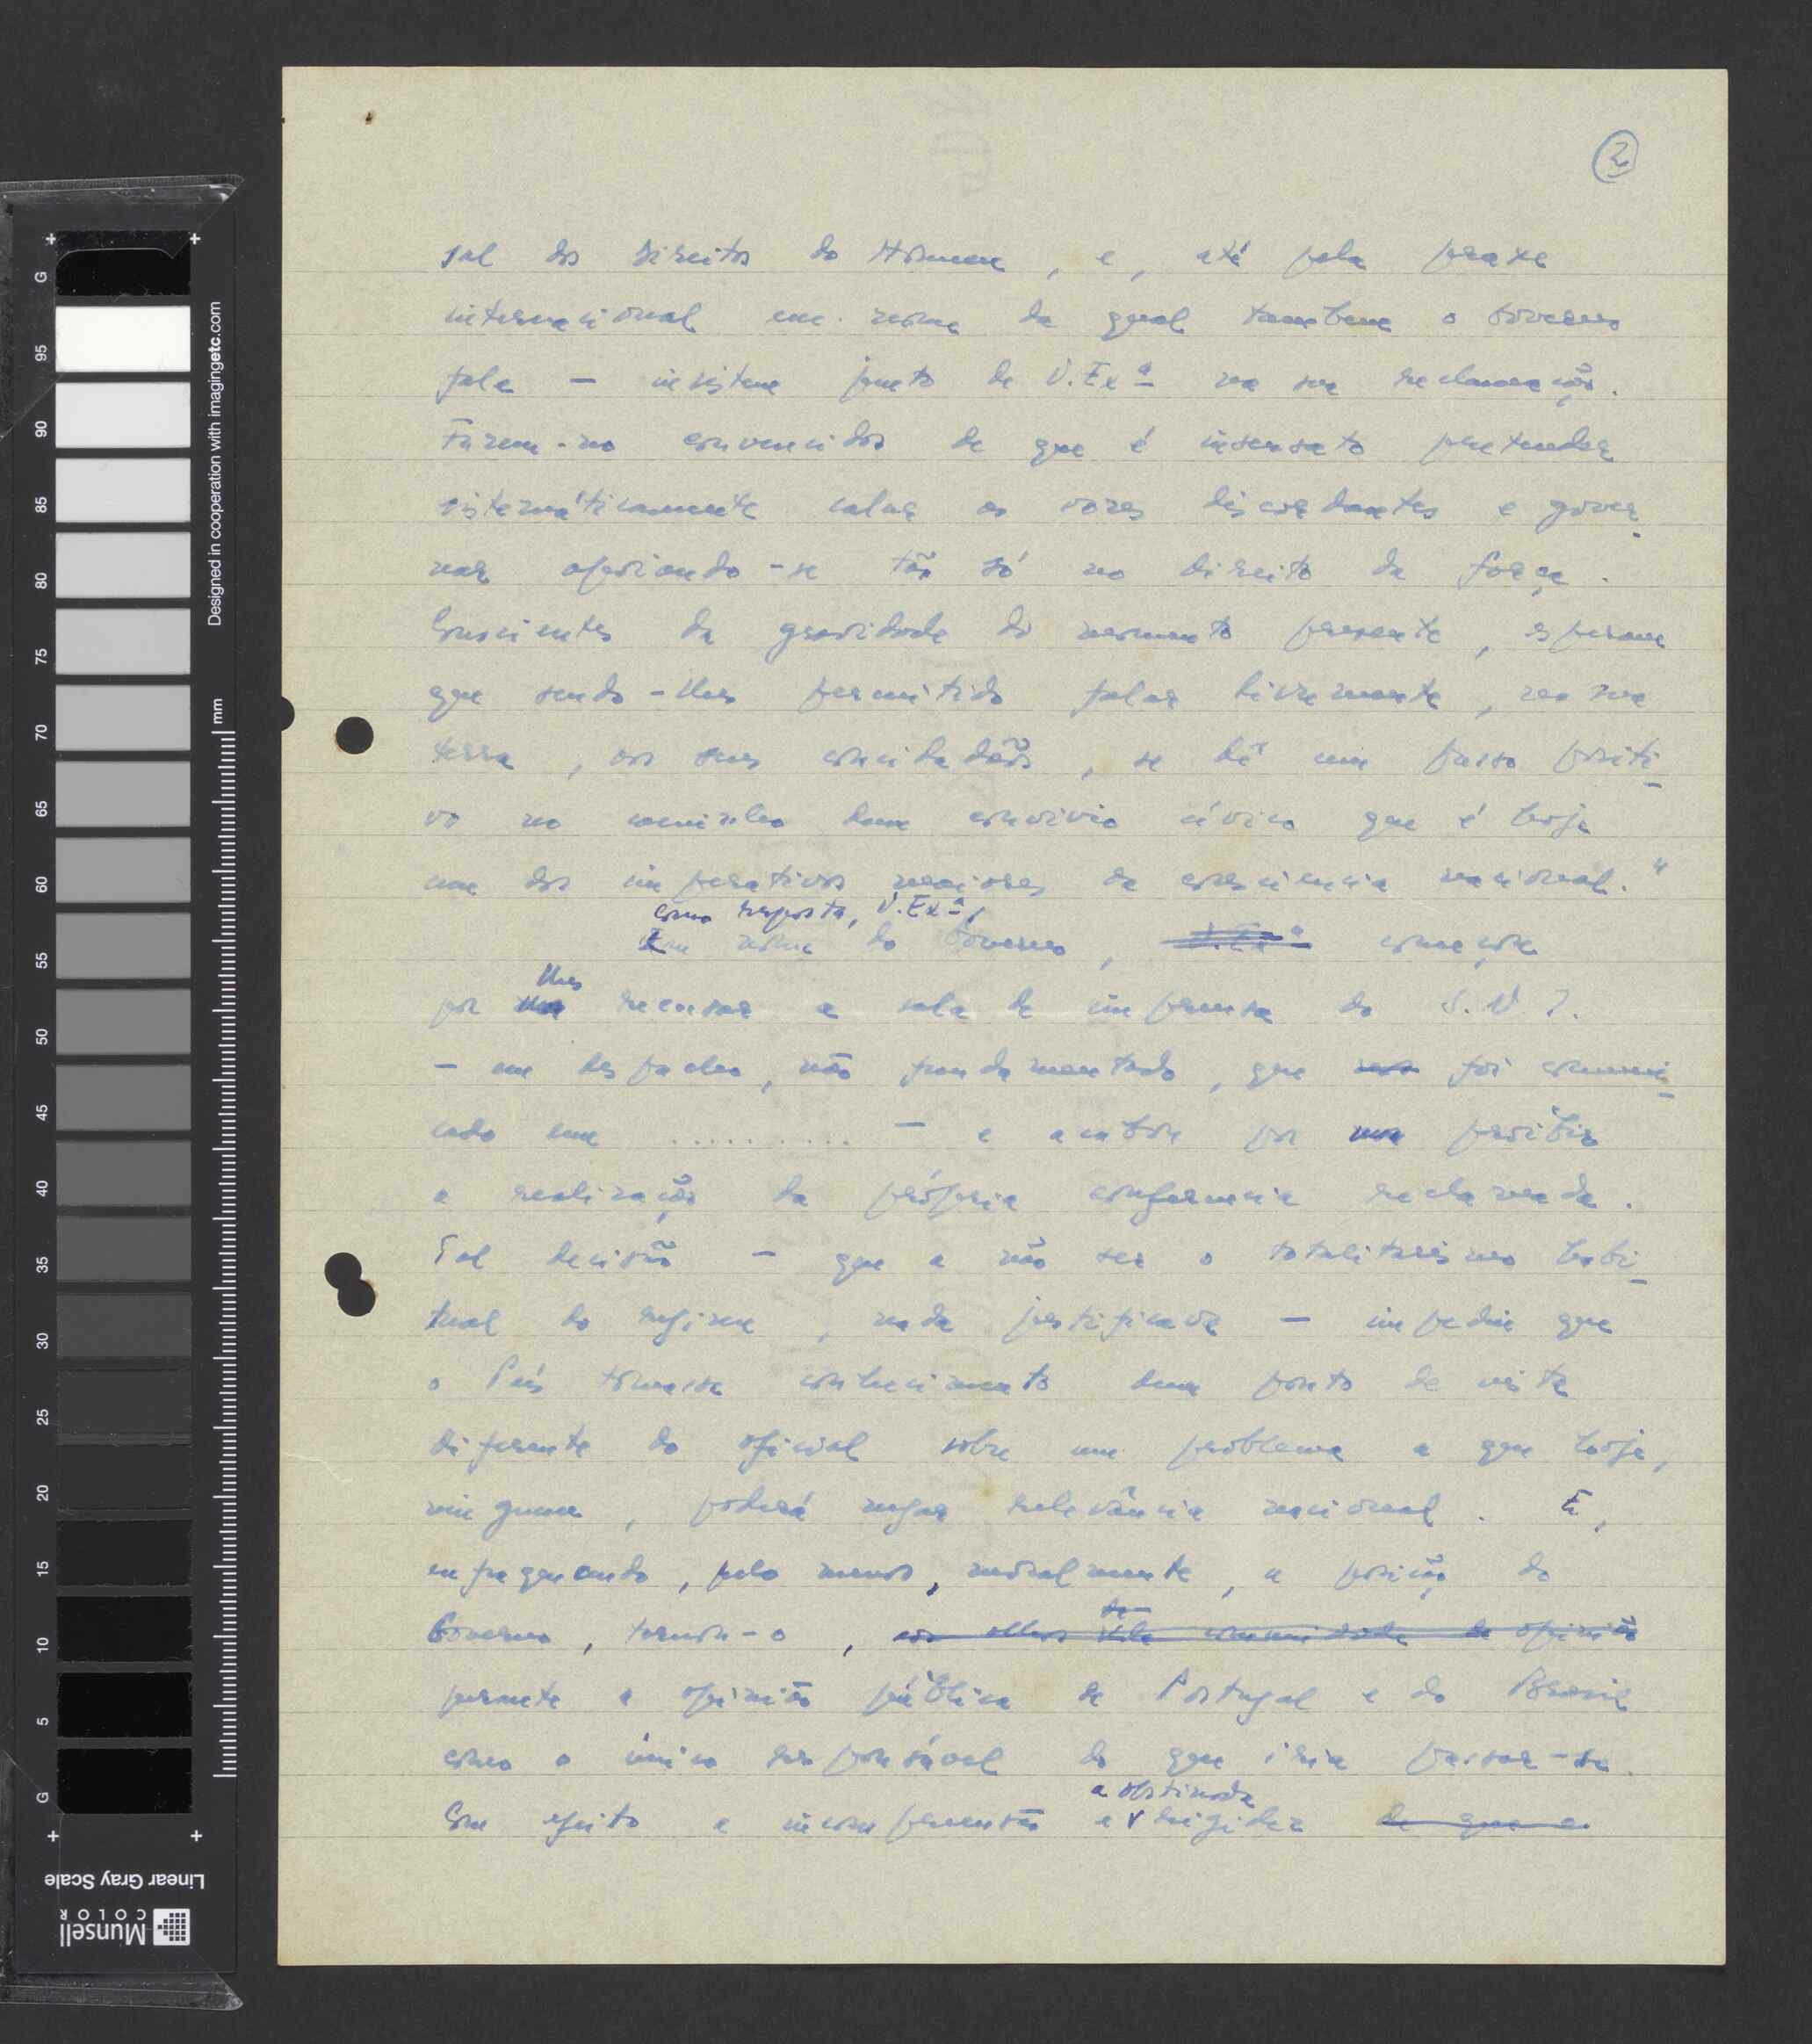 2
sal dos Direitos do Homem, e, até pela praxe
internacional em nome da qual tambem o Governo
fala — insistem junto de V. Exª na sua reclamação.
Fazem-no convencidos de que é insensato pretender
sistemáticamente calar as vozes discordantes e gover-
nar apoiando-se tão só no direito da força.
Conscientes da gravidade do momento presente, esperam
que sendo-lhes permitido falar livremente, na sua
terra, aos seus concidadãos, se dê um passo positi-
vo no caminho dum convivio cívico que é hoje
um dos imperativos maiores da consciencia nacional."
como resposta, V. Exª,
Em nome do Governo, V. Exª começou
lhes
por recusar a sala de imprensa do S.N.I.
— um despacho, não fundamentado, que foi comuni-
cado em .......... — e acabou por proibir
a realização da própria conferencia reclamada.
Tal decisão — que a não ser o totalitarismo habi-
tual do regime, nada justificava — impediu que
o País tomasse conhecimento dum ponto de vista
diferente do oficial sobre um problema a que hoje,
ninguem, poderá negar relevância nacional. E,
enfraquecendo, pelo menos, moralmente, a posição do
Governo, tornou-o, aos olhos da comunidade de opinião
perante a opinião pública de Portugal e do Brasil
como o único responsável do que iria passar-se.
a obstinada
Com efeito a incompreensão e rigidez de que a
Designed in cooperation with imagingetc.com
mm
G 95 90 85 80 75 70 65 60 55 50 45 40 35 30 25 20 15 10 5 G
Linear Gray Scale
Munsell
COLOR